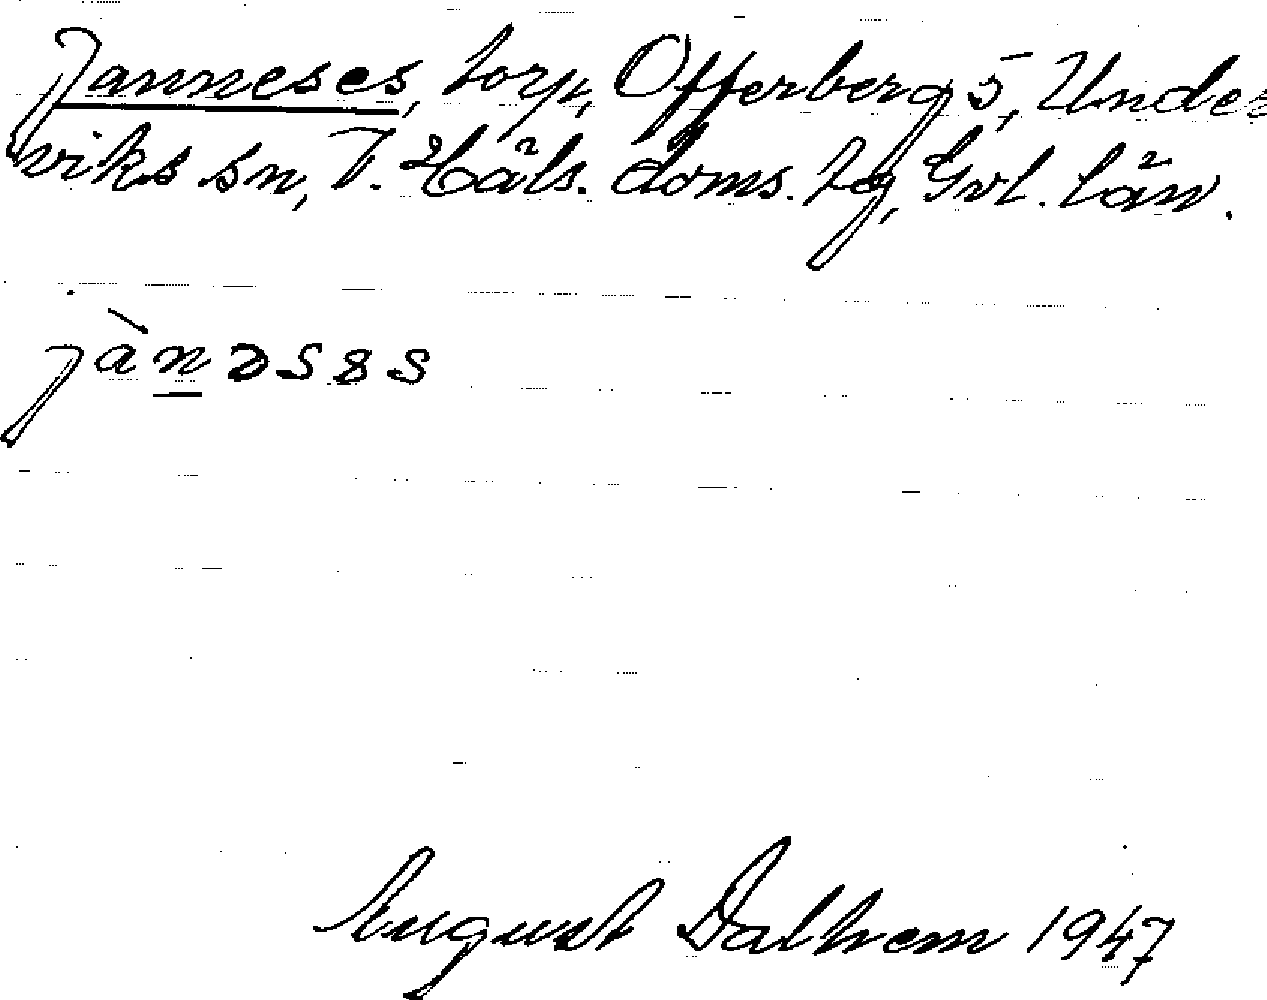 Janneses, torp, Offerberg 5, Under
viks sn, V. Häls. doms. lag, Gvl. län.
jànəsəs
August Dalhem 1947